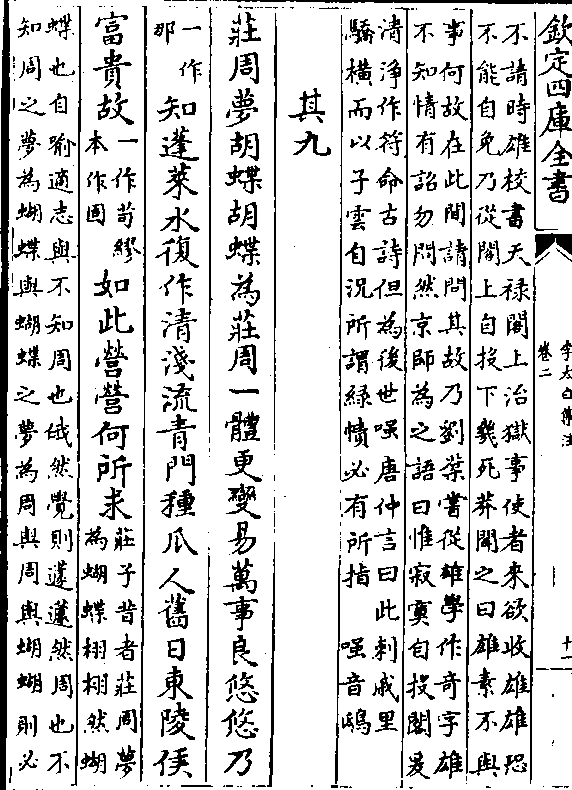 欽定四庫全書
李太白集注
卷二
十一
不請時雄校書天祿閣上治獄事使者來欲收雄雄恐
不能自免乃從閣上自投下幾死莽聞之曰雄素不與
事何故在此間請問其故乃劉棻嘗從雄學作奇字雄
不知情有詔勿問然京師為之語曰惟寂寞自投閣爰
清淨作符命古詩但為後世嗤唐仲言曰此刺戚里
驕橫而以子雲自況所謂綠幘必有所指　嗤音鴟
其九
莊周夢胡蝶胡蝶為莊周一體更變易萬事良悠悠乃
一作那知蓬萊水復作清淺流青門種瓜人舊日東陵侯
富貴故一作苟繆本作固如此營營何所求莊子昔者莊周夢為蝴蝶栩栩然蝴
蝶也自喻適志與不知周也俄然覺則蘧蘧然周也不
知周之夢為蝴蝶與蝴蝶之夢為周與周與蝴蝴則必